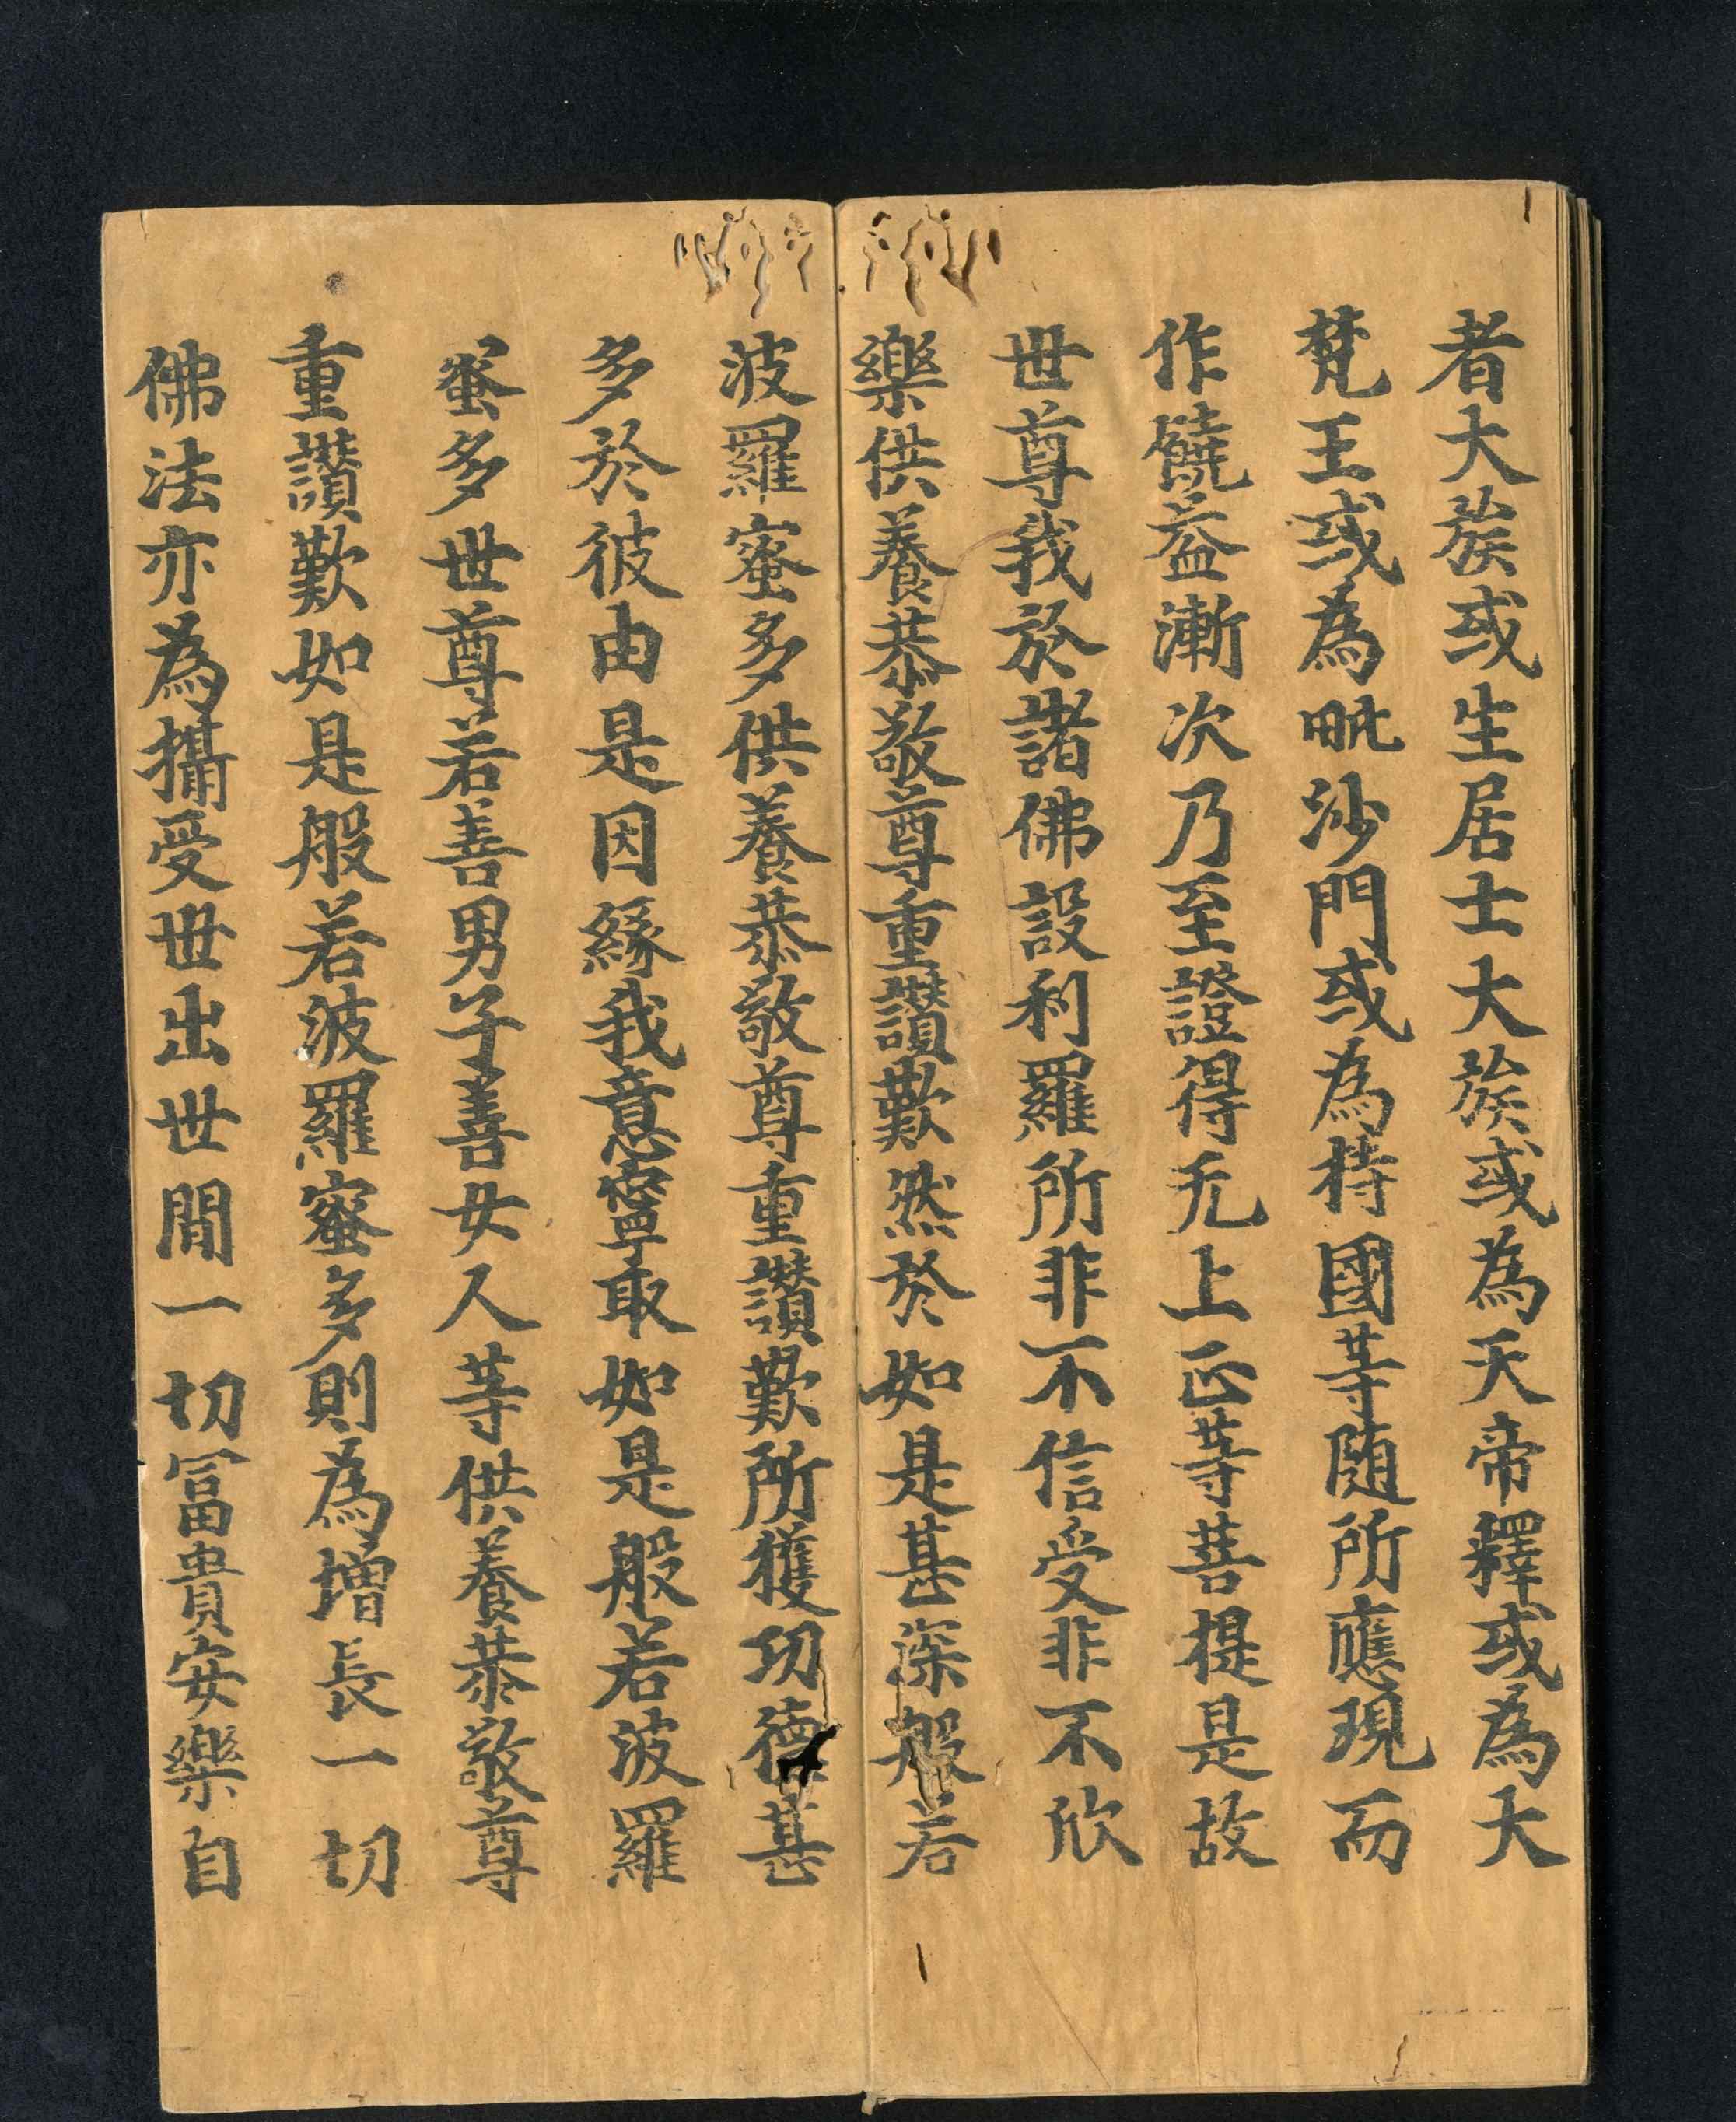 者大族或生居士大族或為天帝釋或為大
梵王或為毗沙門或為持國等随所應現而
作饒益漸次乃至證得无上正等菩提是故
世尊我於諸佛設利羅所非不信受非不欣
樂供養恭敬尊重讚歎然於如是甚深般若
波羅蜜多供養恭敬尊重讚歎所獲功德甚
多於彼由是因緣我意寧取如是般若波羅
蜜多世尊若善男子善女人等供養恭敬尊
重讚歎如是般若波羅蜜多則為增長一切
佛法亦為攝受世出世間一切冨貴安樂自